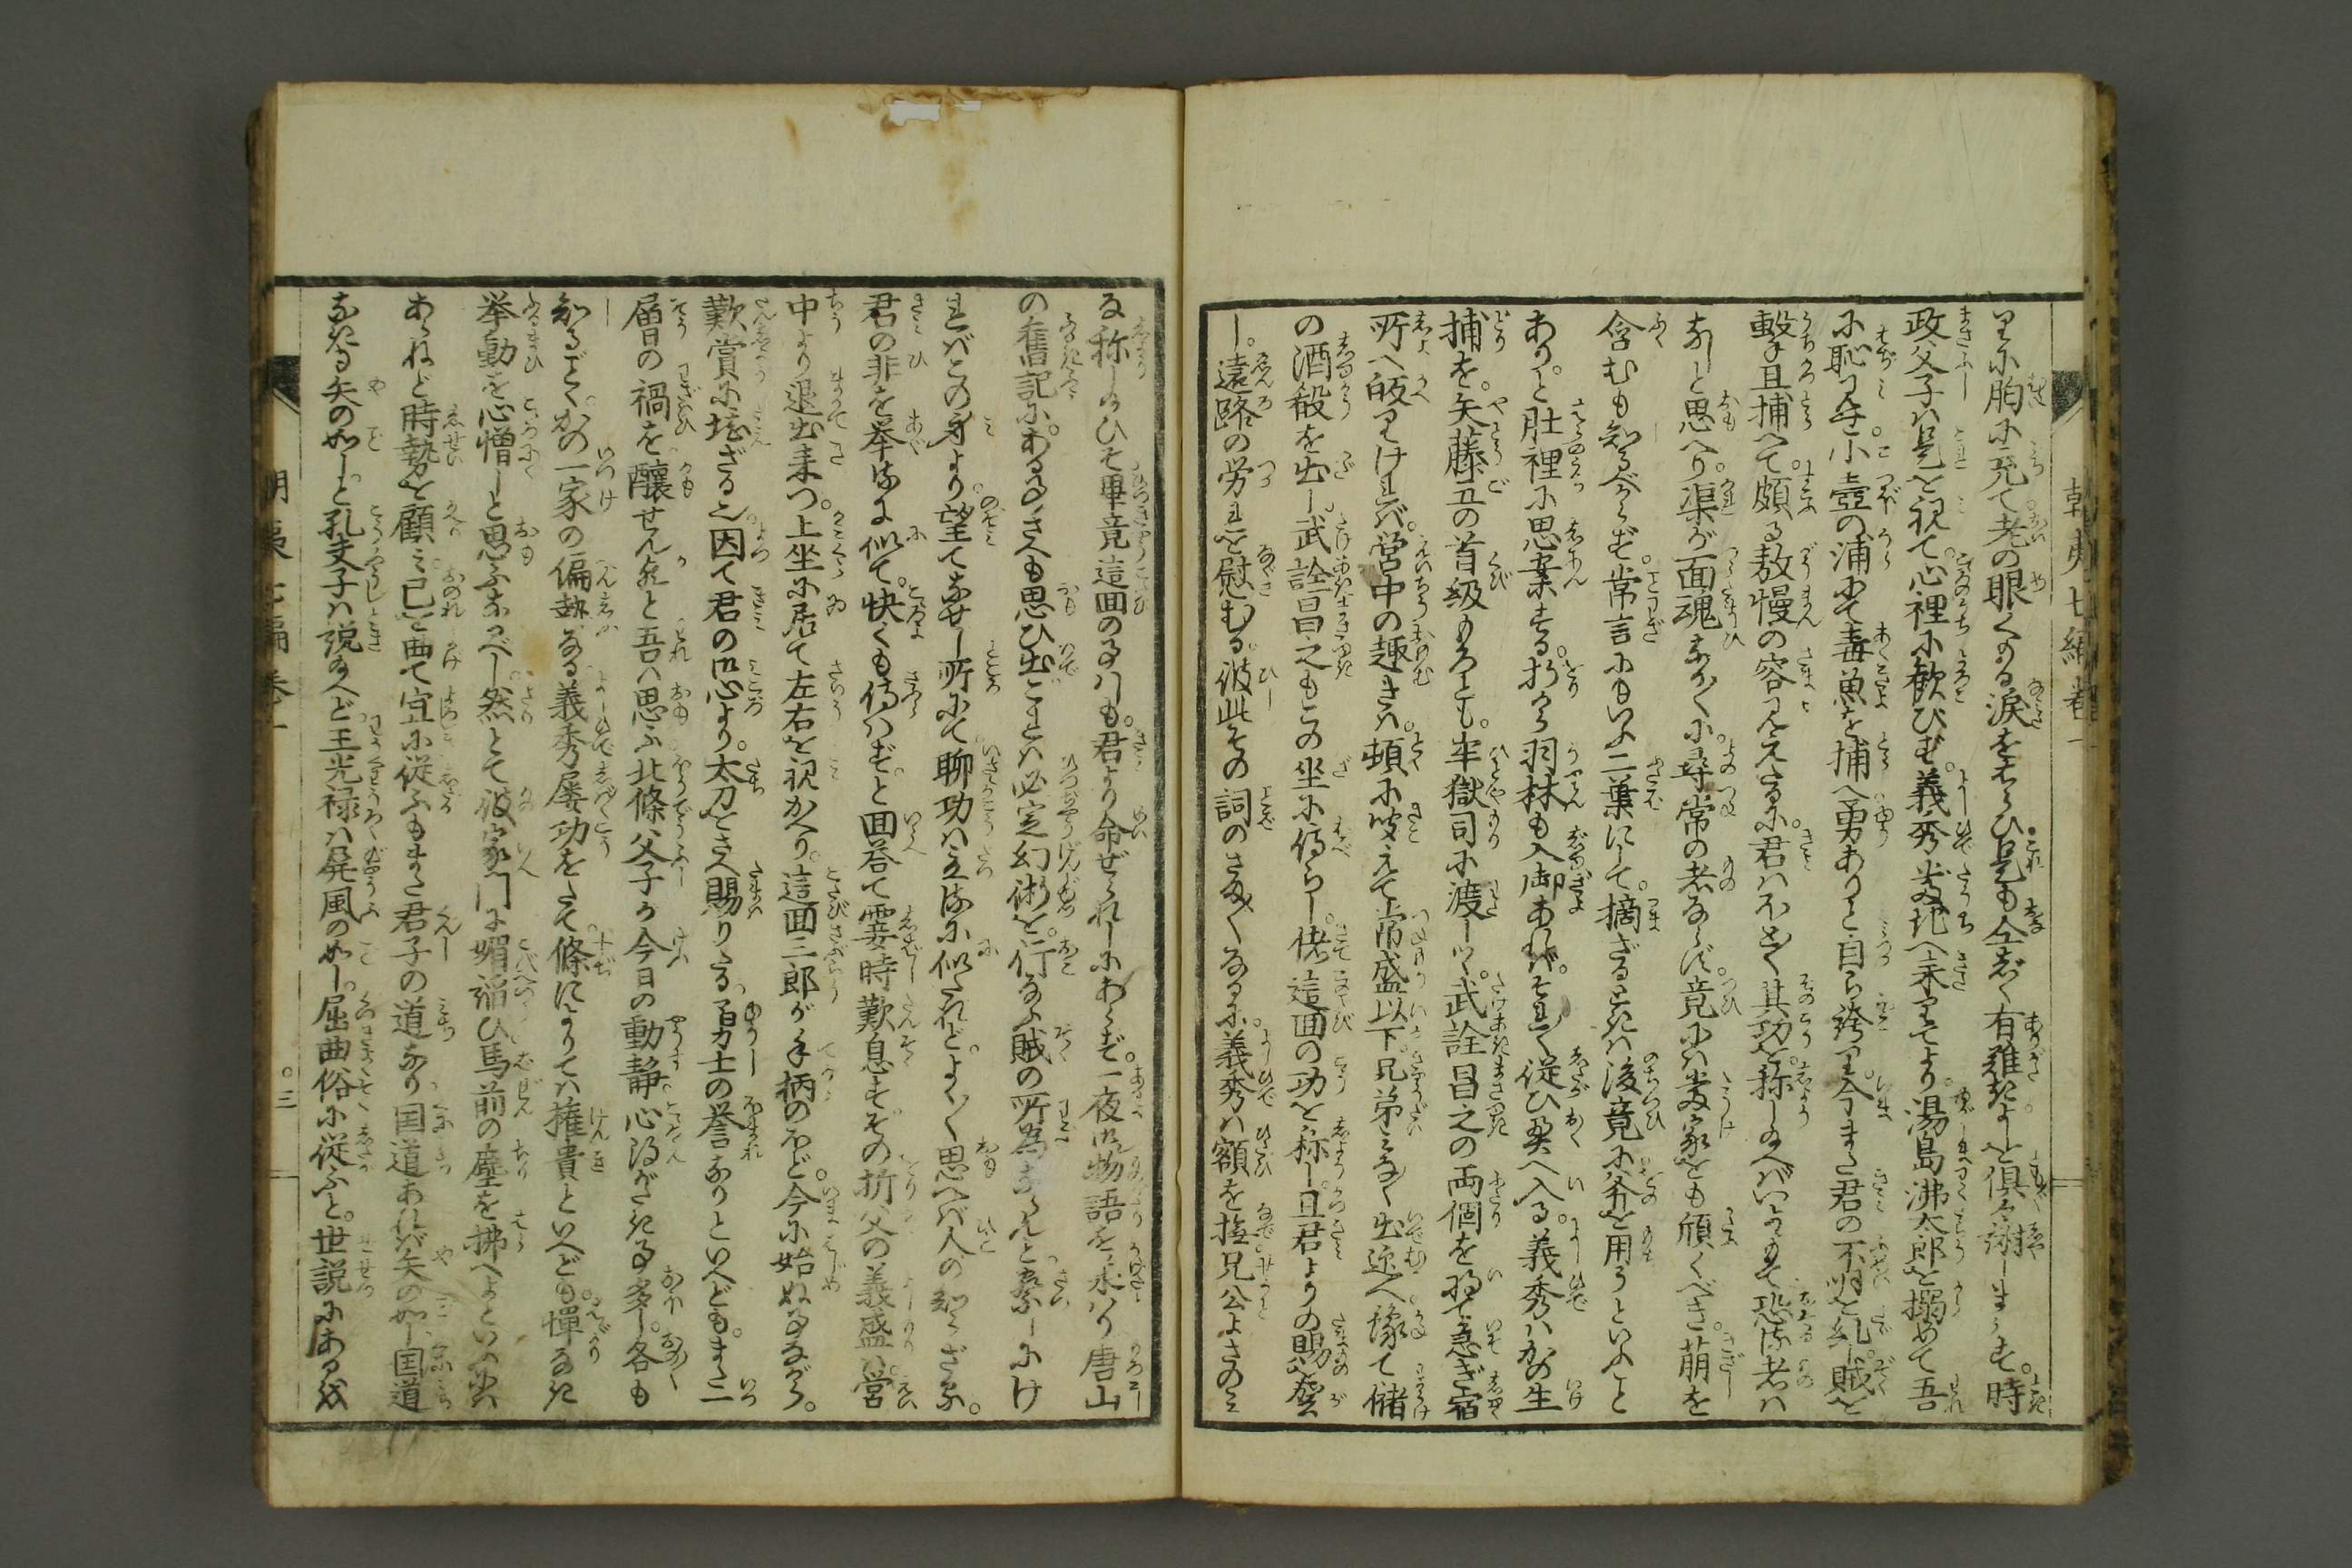 りに胸に充て老の眼くる涙をはらひ是も仝じく有難きよしを倶々謝しまうす。時
政父子ハ是を視て心裡に歓びず。義秀当地へ来りてより。湯島沸太郎を搦めて吾
に恥見せ。小壺の浦にて毒魚を捕へ勇ありと自ら誇り。今また君の不明を糺し賊を
撃且捕へて。頗る敖慢の容見えたるに。君ハ不覚其功を称し給へバいよ／＼もて恐る者ハ
なしと思へり。渠が面魂なか／＼に。尋常の者ならず。竟にハ当家をも傾くべき萌を
含むも知るべからず。常言にもいふ二葉にして。摘ざるときハ後竟に斧を用うといふこと
ありと肚裡に思案する。折から羽林も入御あれバ。みな／＼従ひ奥へ入る。義秀ハかの生
捕を。矢藤五の首級もろとも。牢獄司に渡しつ。武詮昌之の両個を将て急ぎ宿
所へ皈りけれバ。営中の趣きハ。頓に聞えて常盛以下。兄弟みな／＼出迎へ。豫て儲
の酒殽を出し。武詮昌之もこの坐に侍らし。偖這回の功を称し。且君よりの賜を賀
し。遠路の労れを慰むる。彼此その詞のさま／＼なるに。義秀ハ額を撫兄公よさのミ
な称し給ひそ畢竟這回の事ハしも。君より命ぜられしにあらず。一夜御物語を承ハり唐山
の舊記にある事さへも思ひ出ぐこれハ必定幻術を行なふ賊の所為ならんと察しにけ
れバこの身より望てなせし所にて聊功ハ立るに似たれど。よく／＼思へバ人の知らざる。
君の非を挙るに似て。快くも侍ハずと回答て霎時歎息すぞの折父の義盛ハ営
中より退出来つ。上坐に居て左右を視かへり。這回三郎が手柄のほど。今に始ぬ事ながら。
歎賞に堪ざる也。因て君の御心より。太刀をさへ賜りたる。勇士の誉なりといへども。また一
層の禍を醸せん欤と吾ハ思ふ北條父子が今日の動静心得がたき事多し。各も
知るごとくかの一家の偏執なる義秀屡功をたて。條によりてハ権貴といへども。憚なき
挙動を心憎しと思ふなるべし。然とて彼家門に媚諂ひ馬前の塵を拂へよといふにハ
あらねど時勢を顧ミ己を曲て宜に従ふもまた君子の道なり国道あれバ矢の如し国道
なきも矢の如しと孔夫子ハ説給へど王光禄ハ屏風の如し。屈曲俗に従ふと。世説にある我
朝夷七編巻一
朝夷七編巻一
〇三